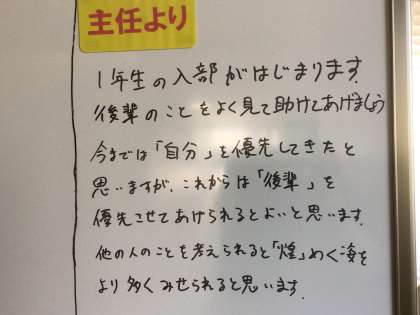 主任より
1年生の入部がはじまります.
後輩のことをよく見て助けてあげましょう
今までは「自分」を優先してきたと
思いますが、これからは「後輩」を
優先させてあげられるとよいと思います.
他の人のことを考えられると「煌」めく姿を
より多くみせられると思います.